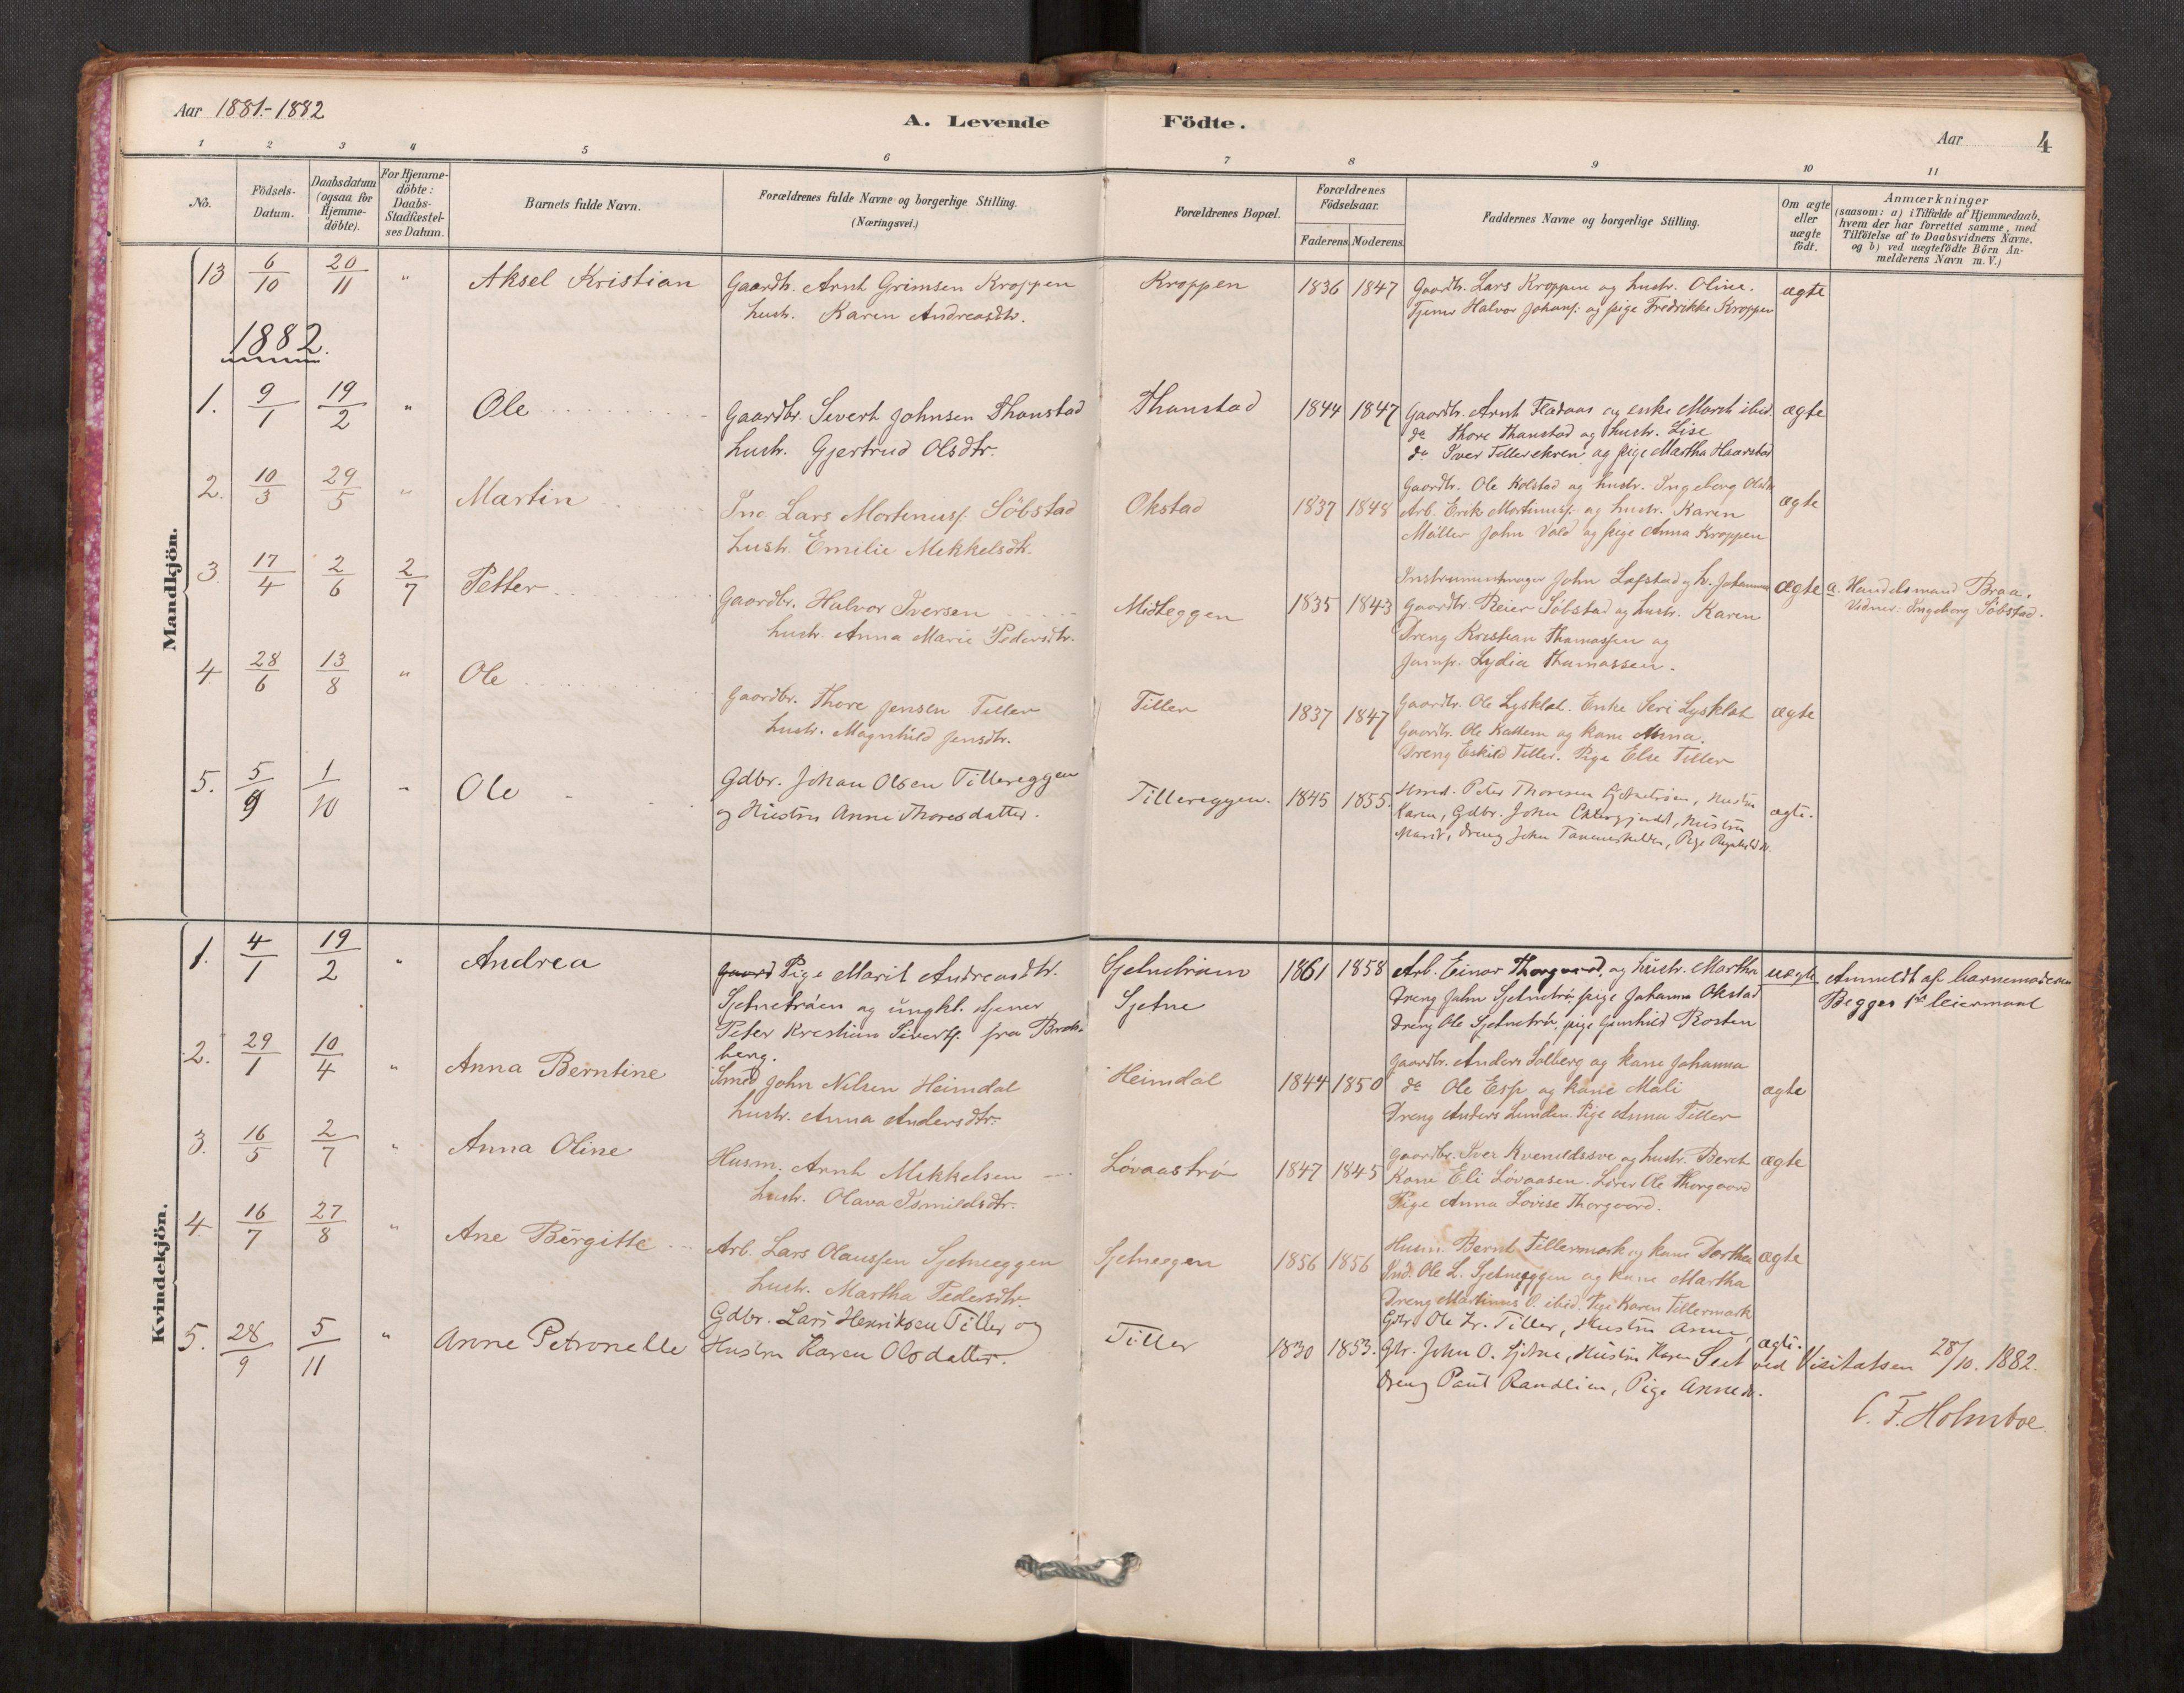 Aar 1881.-1882
A. Levende Födte.
Aar 4
1 2 3 4 5 6 7 8 9 10 11
No.
Födsels-
Datum.
Daabsdatum
(ogsaa for
Hjemme-
döbte).
For Hjemme-
döbte:
Daabs-
Stadfæstel-
ses Datum.
Barnets fulde Navn.
Forældrenes fulde Navne og borgerlige Stilling.
(Næringsvei.)
Forældrenes Bopæl.
Forældrenes
Födselsaar.
Faderens. Moderens.
Faddernes Navne og borgerlige Stilling.
Om ægte
eller
uægte
födt.
Anmærkninger
(saasom: a) i Tilfælde af Hjemmedaab,
hvem der har forrettet samme, med
Tilföielse af to Daabsvidners Navne,
og b) ved uægtefödte Börn An-
melderens Navn m. V.)
Mandkjön.
13 6/10 20/11 " Aksel Kristian
Gaardb. Arnt Grimsen Kroppen
hustr. Karen Andreasdtr.
Kroppen 1836 1847
Gaardb. Lars Kroppen og hustr. Oline.
Tjener Halvor Johans. og pige Fredrikke Kroppen
ægte
1882.
1. 9/1 19/2 " Ole
Gaardbr. Sivert Johnsen Thonstad
hustr. Gjertrud Olsdtr.
Thonstad 1844 1847
Gaardbr. Arnt Fladaas og enke Marit ibid.
do Thore Thonstad og hustr. Lise
do Iver Tillerekren og pige Martha Haarstad
ægte
2. 10/3 29/5 " Martin
Ind. Lars Mortinusf. Söbstad
hustr. Emilie Mikkelsdtr.
Okstad 1837 1848
Gaardbr. Ole Kolstad og hustr. Ingeborg Olsdtr
Arb. Erik Mortinusf. og hustr. Karen
Möller John Vold og pige Anna Kroppen
ægte
3. 17/4 2/6 2/7 Petter
Gaardbr. Halvor Iversen
hustr. Anna Marie Pedersdtr.
Midteggen 1835 1843
Instrumentmager John Lefstad og h. Johanna
Gaardbr. Reier Söbstad og hustr. Karen
Dreng Kristian Thomassen og
Jomfr. Lydia Thomassen.
ægte
a. Handelsmand Braa.
Vidner: Ingeborg Söbstad.
4. 28/6 13/8 " Ole
Gaardbr. Thore Jensen Tiller
hustr. Magnhild Jensdtr.
Tiller 1837 1847
Gaardbr. Ole Lysklet. Enke Seri Lysklet
Gaardbr. Ole Kattem og kone Anna.
Dreng Eskild Tiller. Pige Else Tiller
ægte
5. 5/9 1/10 " Ole
Gdbr. Johan Olsen Tillereggen
og Hustru Anne Thoresdatter.
Tillereggen. 1845 1855.
Hmd. Peter Thoresen Sjetnetröen, Hustru
Karen, Gdbr. John, Hustru
Marit, dreng John, Pige Ragnhild
ægte.
Kvindekjön.
1. 4/1 19/2 " Andrea
Gaard Pige Marit Andreasdtr.
Sjetnetröen og ungkl. tjener
Peter Kristian Sivertf. fra Brots-
berg.
Sjetnetröen
Sjetne
1861 1858
Arb. Einar Thorgaard, og hustr. Martha
Dreng John Sjetnetrö, pige Johanna Okstad
Dreng Ole Sjetnetrö, pige Gunhild Rosten
uægte
Anmeldt af barnemoderen
Begges 1ste leiermaal
2. 29/1 10/4 " Anna Berntine
Smed John Nilsen Heimdal
hustr. Anna Andersdtr.
Heimdal 1844 1850
Gaardbr. Anders Solberg og kone Johanna
do Ole Esp og kone Mali
Dreng Anders Lunden. Pige Anna Tiller
ægte
3. 16/5 2/7 " Anna Oline
Husm. Arnt Mikkelsen
hustr. Olava Ismildsdtr.
Lövaaströ 1847 1845
Gaardbr. Iver og hustr. Beret
Kone Eli Lövaasen. Lærer Ole Thorgaard
Pige Anna Lovise Thorgaard.
ægte
4. 16/7 27/8 " Ane Birgitte
Arb. Lars Olaussen Sjetneeggen
hustr. Martha Pedersdtr.
Sjetneegen 1856 1856
Husm. Bernt Tillermark og kone Dorthea
Ind. Ole L. Sjetneeggen og kone Martha
Dreng Martinus O. ibid. Pige Karen Tillermark
ægte
5. 28/9 5/11 " Anne Petronelle
Gdbr. Lars Henriksen Tiller og
Hustru Karen Olsdatter.
Tiller 1830 1853.
Gdbr. Ole Tiller, Hustru Anne,
Gbr. John O. Sjetne, Hustru Karen
dreng Paul Randlien, Pige Anne
ægte.
Seet ved Visitatsen 28/10. 1882.
C. F. Holmboe.